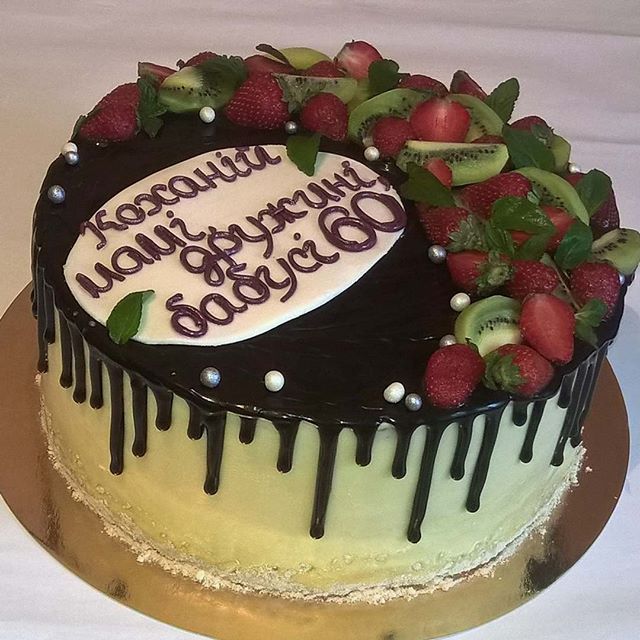 Коханій
мамі,
дружині,
бабусі 60